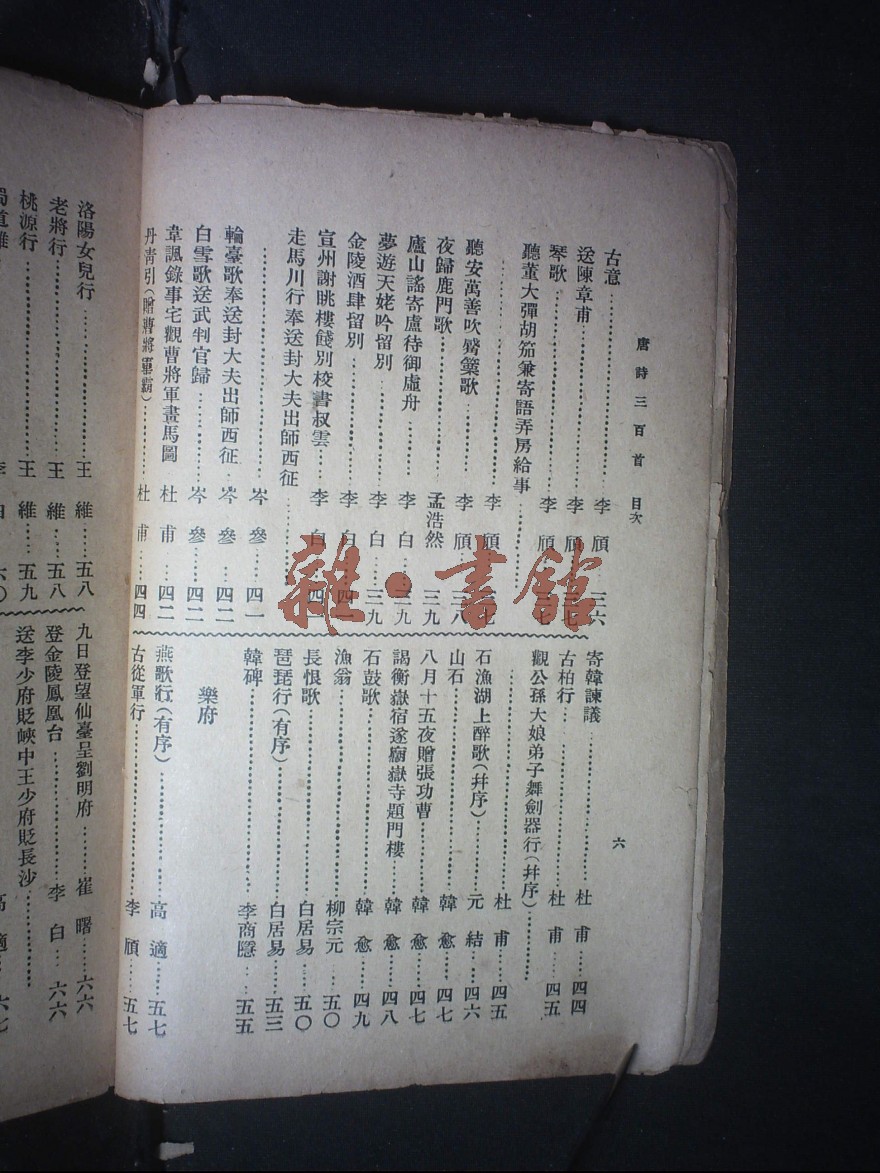 唐詩三百首 目次
六
古意……李頎 三六
送陳章甫……李頎 三七
琴歌……李頎 三七
聽董大彈胡笳兼寄語弄房給事……
……李頎 三七
聽安萬善吹觱篥歌……李頎 三八
夜歸鹿門歌……孟浩然 三九
廬山謠寄盧侍御虛舟……李白 三九
夢遊天姥吟留別……李白 三九
金陵酒肆留別……李白 四一
宣州謝眺樓餞別校書叔雲……李白 四一
走馬川行奉送封大夫出師西征……
……岑參……四一
輪臺歌奉送封大夫出師西征……岑參……四二
白雪歌送武判官歸……岑參……四二
韋諷錄事宅觀曹將軍畫馬圖 杜甫……四二
丹靑引(贈曹將軍霸)……杜甫……四四
寄韓諫議……杜甫……四四
古柏行……杜甫……四五
觀公孫大娘弟子舞劍器行(幷序)……
……杜甫……四五
石漁湖上醉歌(幷序)……元結……四六
山石……韓愈……四七
八月十五夜贈張功曹……韓愈……四七
謁衡嶽宿遂廟嶽寺題門樓……韓愈……四八
石鼓歌……韓愈……四九
漁翁……柳宗元……五〇
長恨歌……白居易……五〇
琵琶行(有序)……白居易……五三
韓碑……李商隱……五五
樂府
燕歌行(有序)……高適……五七
古從軍行……李頎……五七
洛陽女兒行……王維……五八
老將行……王維……五八
桃源行……王維……五九
九日登望仙臺呈劉明府……崔曙……六六
登金陵鳳凰台……李白……六六
送李少府貶峽中王少府貶長沙……
雜·書館